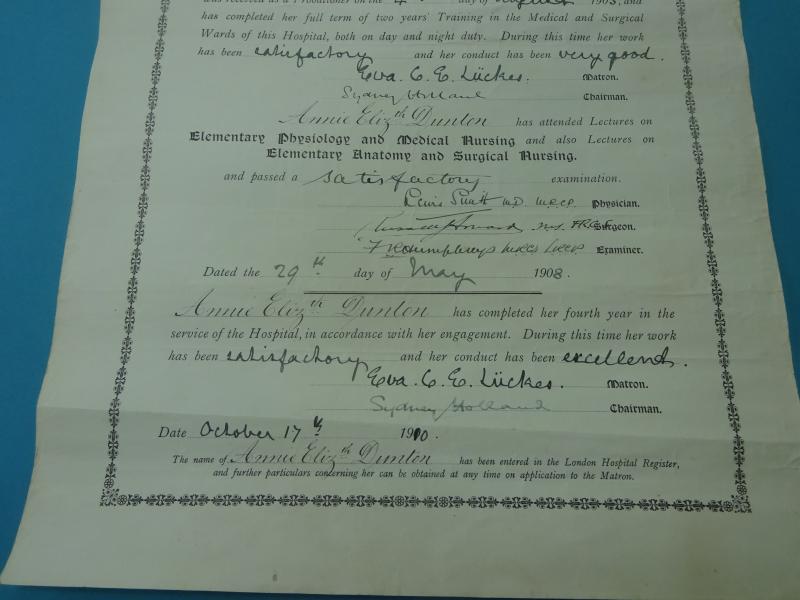 was received as a Probationer on the 4th day of August 1905, and
has completed her full term of two years' Training in the Medical and Surgical
Wards of this Hospital, both on day and night duty. During this time her work
has been satisfactory and her conduct has been very good.
Eva. C. E. Lückes. Matron.
Sydney Holland Chairman.
Annie Elizth Dunton has attended Lectures on
Elementary Physiology and Medical Nursing and also Lectures on
Elementary Anatomy and Surgical Nursing.
and passed a satisfactory examination.
Lewis Smith M.D. M.R.C.P. Physician.
Russell Howard M.S. FRCS Surgeon.
F R Humphreys MRCS LRCP Examiner.
Dated the 29th day of May 1908.
Annie Elizth Dunton has completed her fourth year in the
service of the Hospital, in accordance with her engagement. During this time her work
has been satisfactory and her conduct has been excellent.
Eva. C. E. Lückes. Matron.
Sydney Holland Chairman.
Date October 17th 1910.
The name of Annie Elizth Dunton has been entered in the London Hospital Register,
and further particulars concerning her can be obtained at any time on application to the Matron.